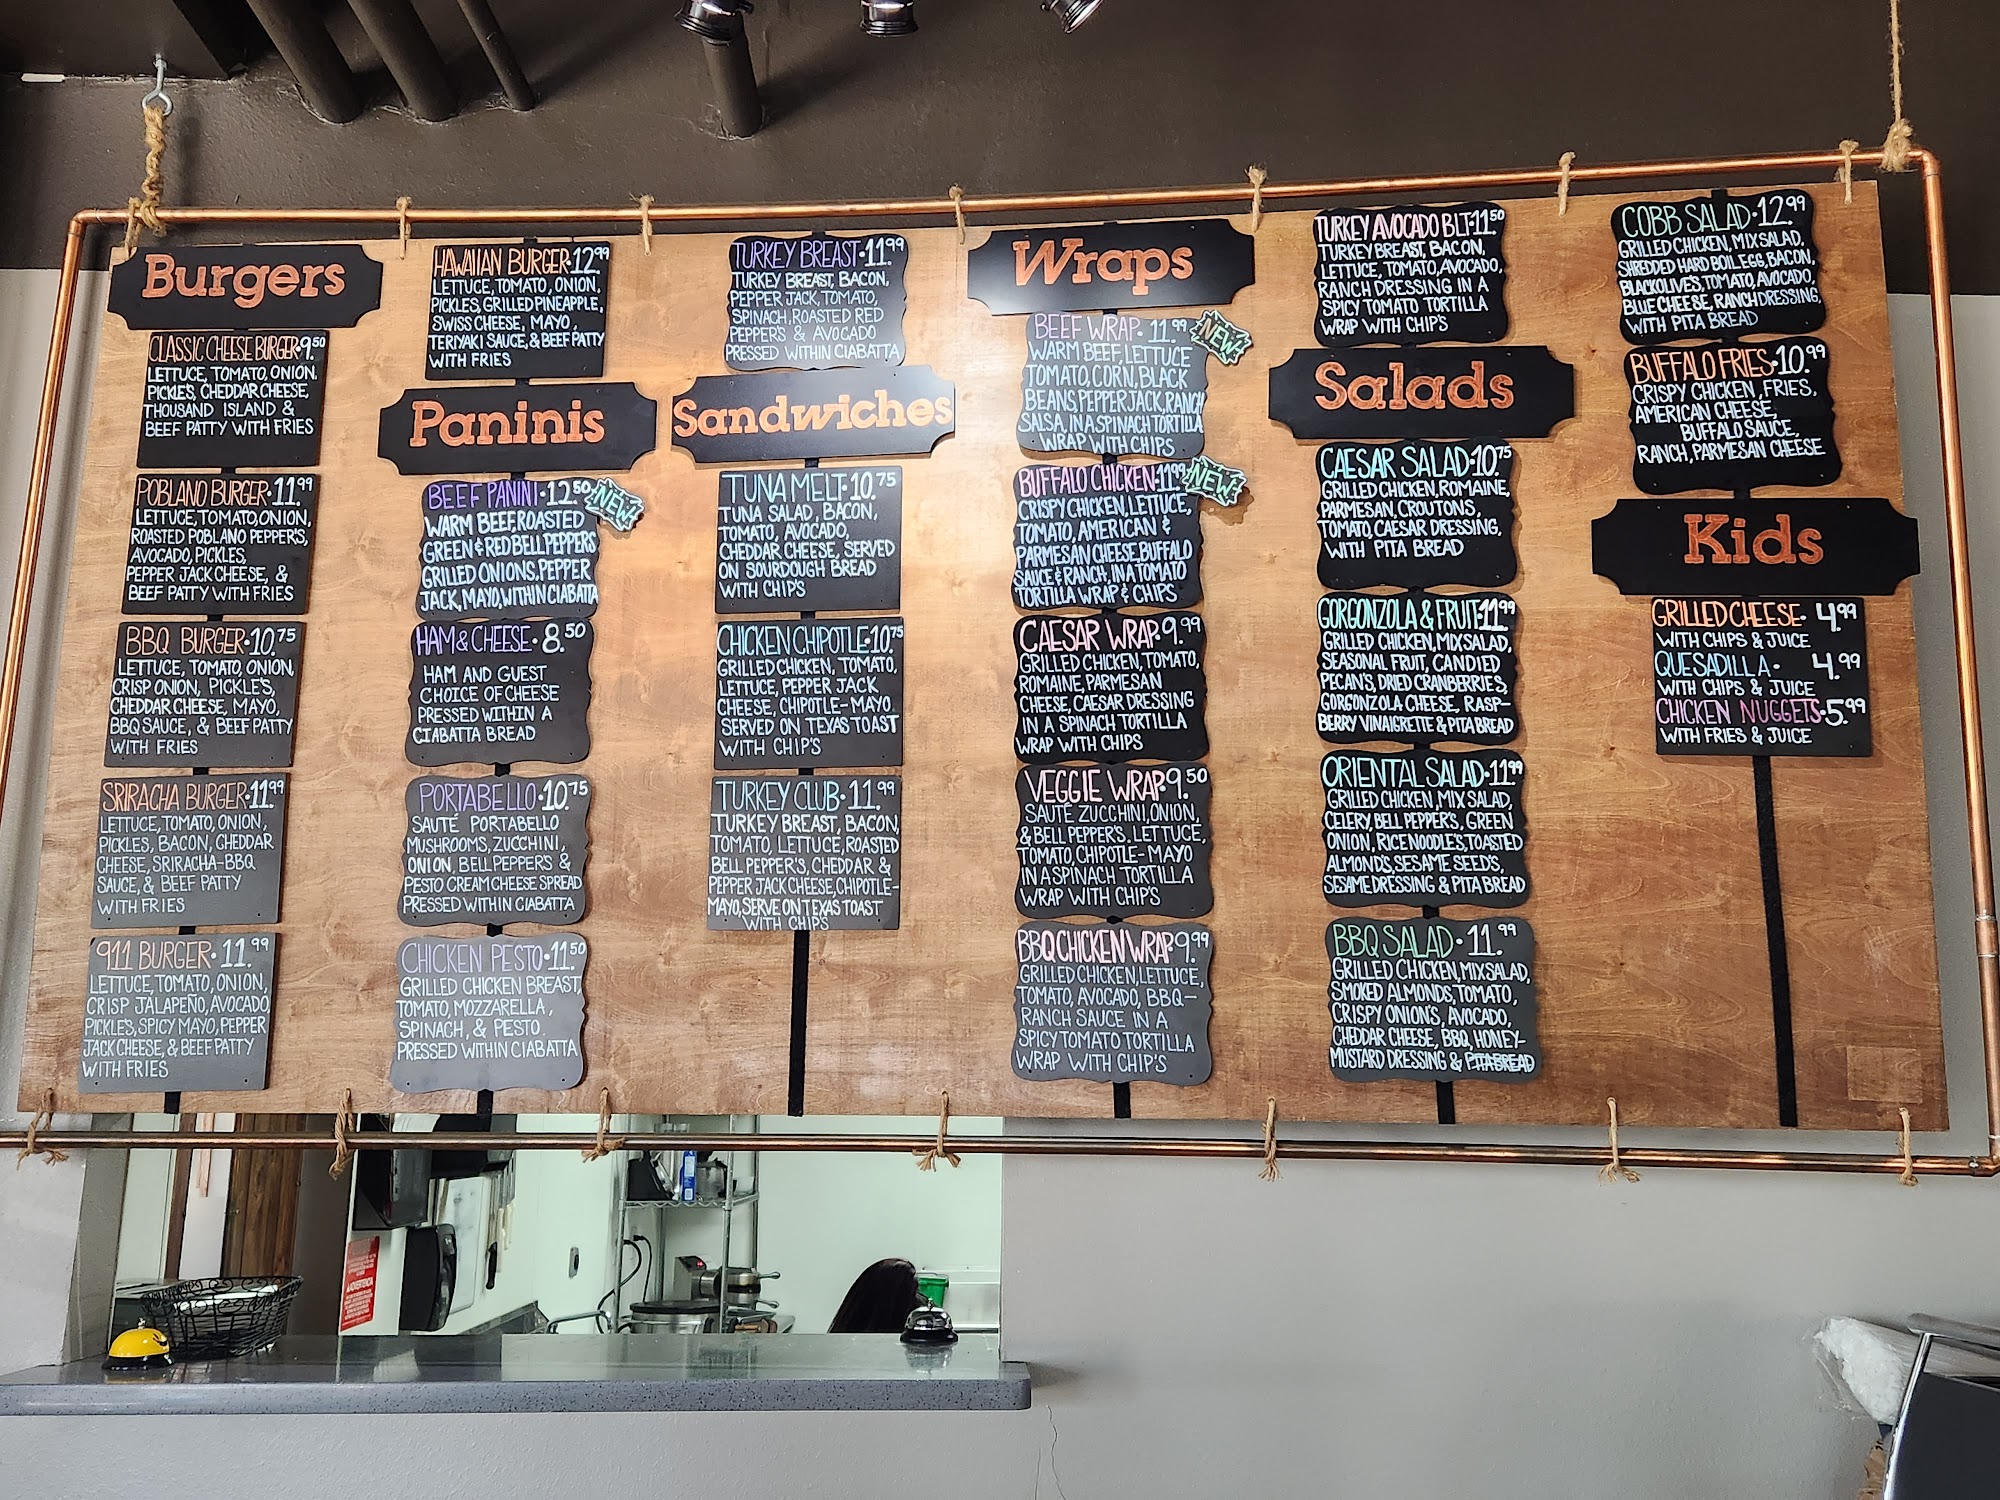 Burgers
CLASSIC CHEESE BURGER • 9.50
LETTUCE, TOMATO, ONION,
PICKLE'S, CHEDDAR CHEESE,
THOUSAND ISLAND &
BEEF PATTY WITH FRIES
POBLANO BURGER • 11.99
LETTUCE, TOMATO, ONION,
ROASTED POBLANO PEPPER'S,
AVOCADO, PICKLES,
PEPPER JACK CHEESE, &
BEEF PATTY WITH FRIES
BBQ BURGER • 10.75
LETTUCE, TOMATO, ONION,
CRISP ONION, PICKLE'S,
CHEDDAR CHEESE, MAYO,
BBQ SAUCE, & BEEF PATTY
WITH FRIES
SRIRACHA BURGER • 11.99
LETTUCE, TOMATO, ONION,
PICKLES, BACON, CHEDDAR
CHEESE, SRIRACHA-BBQ
SAUCE, & BEEF PATTY
WITH FRIES
911 BURGER • 11.99
LETTUCE, TOMATO, ONION,
CRISP JALAPEÑO, AVOCADO,
PICKLE'S, SPICY MAYO, PEPPER
JACK CHEESE, & BEEF PATTY
WITH FRIES
HAWAIIAN BURGER • 12.99
LETTUCE, TOMATO, ONION,
PICKLES, GRILLED PINEAPPLE,
SWISS CHEESE, MAYO,
TERIYAKI SAUCE, & BEEF PATTY
WITH FRIES
Paninis
BEEF PANINI • 12.50
NEW!
WARM BEEF, ROASTED
GREEN & RED BELL PEPPERS
GRILLED ONIONS, PEPPER
JACK, MAYO, WITHIN CIABATTA
HAM & CHEESE • 8.50
HAM AND GUEST
CHOICE OF CHEESE
PRESSED WITHIN A
CIABATTA BREAD
PORTABELLO • 10.75
SAUTÉ PORTABELLO
MUSHROOMS, ZUCCHINI,
ONION, BELL PEPPERS &
PESTO CREAM CHEESE SPREAD
PRESSED WITHIN CIABATTA
CHICKEN PESTO • 11.50
GRILLED CHICKEN BREAST,
TOMATO, MOZZARELLA,
SPINACH, & PESTO.
PRESSED WITHIN CIABATTA
TURKEY BREAST • 11.99
TURKEY BREAST, BACON,
PEPPER JACK, TOMATO,
SPINACH, ROASTED RED
PEPPER'S & AVOCADO
PRESSED WITHIN CIABATTA
Sandwiches
TUNA MELT • 10.75
TUNA SALAD, BACON,
TOMATO, AVOCADO,
CHEDDAR CHEESE, SERVED
ON SOURDOUGH BREAD
WITH CHIP'S
CHICKEN CHIPOTLE • 10.75
GRILLED CHICKEN, TOMATO,
LETTUCE, PEPPER JACK
CHEESE, CHIPOTLE-MAYO
SERVED ON TEXAS TOAST
WITH CHIP'S
TURKEY CLUB • 11.99
TURKEY BREAST, BACON,
TOMATO, LETTUCE, ROASTED
BELL PEPPER'S, CHEDDAR &
PEPPER JACK CHEESE, CHIPOTLE-
MAYO, SERVE ON TEXAS TOAST
WITH CHIPS
Wraps
BEEF WRAP • 11.99
NEW!
WARM BEEF, LETTUCE
TOMATO, CORN, BLACK
BEANS, PEPPER JACK, RANCH
SALSA, IN A SPINACH TORTILLA
WRAP WITH CHIPS
BUFFALO CHICKEN • 11.99
NEW!
CRISPY CHICKEN, LETTUCE,
TOMATO, AMERICAN &
PARMESAN CHEESE, BUFFALO
SAUCE & RANCH, IN A TOMATO
TORTILLA WRAP & CHIPS
CAESAR WRAP • 9.99
GRILLED CHICKEN, TOMATO,
ROMAINE, PARMESAN
CHEESE, CAESAR DRESSING
IN A SPINACH TORTILLA
WRAP WITH CHIPS
VEGGIE WRAP • 9.50
SAUTÉ ZUCCHINI, ONION,
& BELL PEPPER'S. LETTUCE,
TOMATO, CHIPOTLE-MAYO
IN A SPINACH TORTILLA
WRAP WITH CHIP'S
BBQ CHICKEN WRAP • 9.99
GRILLED CHICKEN, LETTUCE,
TOMATO, AVOCADO, BBQ-
RANCH SAUCE IN A
SPICY TOMATO TORTILLA
WRAP WITH CHIP'S
TURKEY AVOCADO BLT • 11.50
TURKEY BREAST, BACON,
LETTUCE, TOMATO, AVOCADO,
RANCH DRESSING IN A
SPICY TOMATO TORTILLA
WRAP WITH CHIP'S
Salads
CAESAR SALAD • 10.75
GRILLED CHICKEN, ROMAINE,
PARMESAN, CROUTONS,
TOMATO, CAESAR DRESSING,
WITH PITA BREAD
GORGONZOLA & FRUIT • 11.99
GRILLED CHICKEN, MIX SALAD,
SEASONAL FRUIT, CANDIED
PECAN'S, DRIED CRANBERRIES,
GORGONZOLA CHEESE, RASP-
BERRY VINAIGRETTE & PITA BREAD
ORIENTAL SALAD • 11.99
GRILLED CHICKEN, MIX SALAD,
CELERY, BELL PEPPER'S, GREEN
ONION, RICE NOODLE'S, TOASTED
ALMOND'S, SESAME SEED'S,
SESAME DRESSING & PITA BREAD
BBQ SALAD • 11.99
GRILLED CHICKEN, MIX SALAD,
SMOKED ALMONDS, TOMATO,
CRISPY ONION'S, AVOCADO,
CHEDDAR CHEESE, BBQ, HONEY-
MUSTARD DRESSING & PITA BREAD
COBB SALAD • 12.99
GRILLED CHICKEN, MIX SALAD,
SHREDDED HARD BOIL EGG, BACON,
BLACK OLIVES, TOMATO, AVOCADO,
BLUE CHEESE, RANCH DRESSING,
WITH PITA BREAD
BUFFALO FRIES • 10.99
CRISPY CHICKEN, FRIES,
AMERICAN CHEESE,
BUFFALO SAUCE,
RANCH, PARMESAN CHEESE
Kids
GRILLED CHEESE • 4.99
WITH CHIPS & JUICE
QUESADILLA • 4.99
WITH CHIPS & JUICE
CHICKEN NUGGETS • 5.99
WITH FRIES & JUICE
ADVERTENCIA